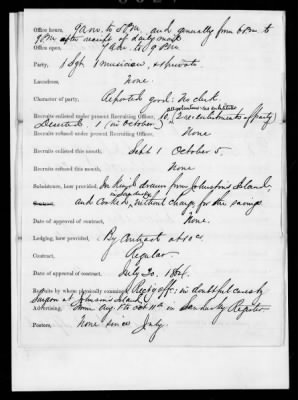 Office hours, 9 a.m. to 5 P.M. and annually from 6 P.M. to
8 P.M. after receipt of duty ment
Office open, 7 a.m. to 9 P.M.
Party, 1 Sgt. 1 musician, privates
Laundress, none.
Character of party, Reported good: No clerk
Recruits enlisted under present Recruiting Officer, 10, (2 reenlistments of party)
Deserted 1 (in October)
Recruits refused under present Recruiting Officer, None
Recruits enlisted this month, Sept 1 October 5,
Recruits refused this month, None
Subsistence, how provided, In kind drawn from Johnson's Island,
and Cooked, without charge for the savings
Date of approval of contract, None.
Lodging, how provided, By Contract at 10 c.
Contract, Regular
Date of approval of contract, July 20. 1864.
Recruits by whom physically examined, Recty offr: in doubtful cases by
Surgeon at Johnson's Island
Advertising, from Aug. 1 to Oct 11th in Sandusky Register
Posters, None since July.